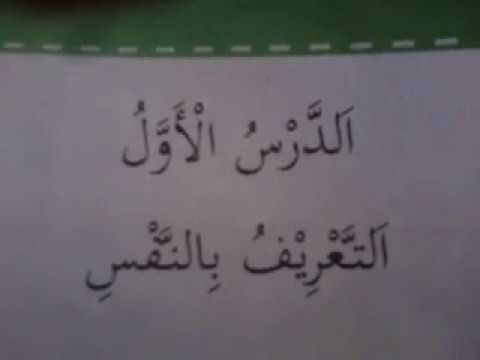 اَلدَّرْسُ الْأَوَّلُ
اَلتَّعْرِيْفُ بِالنَّفْسِ